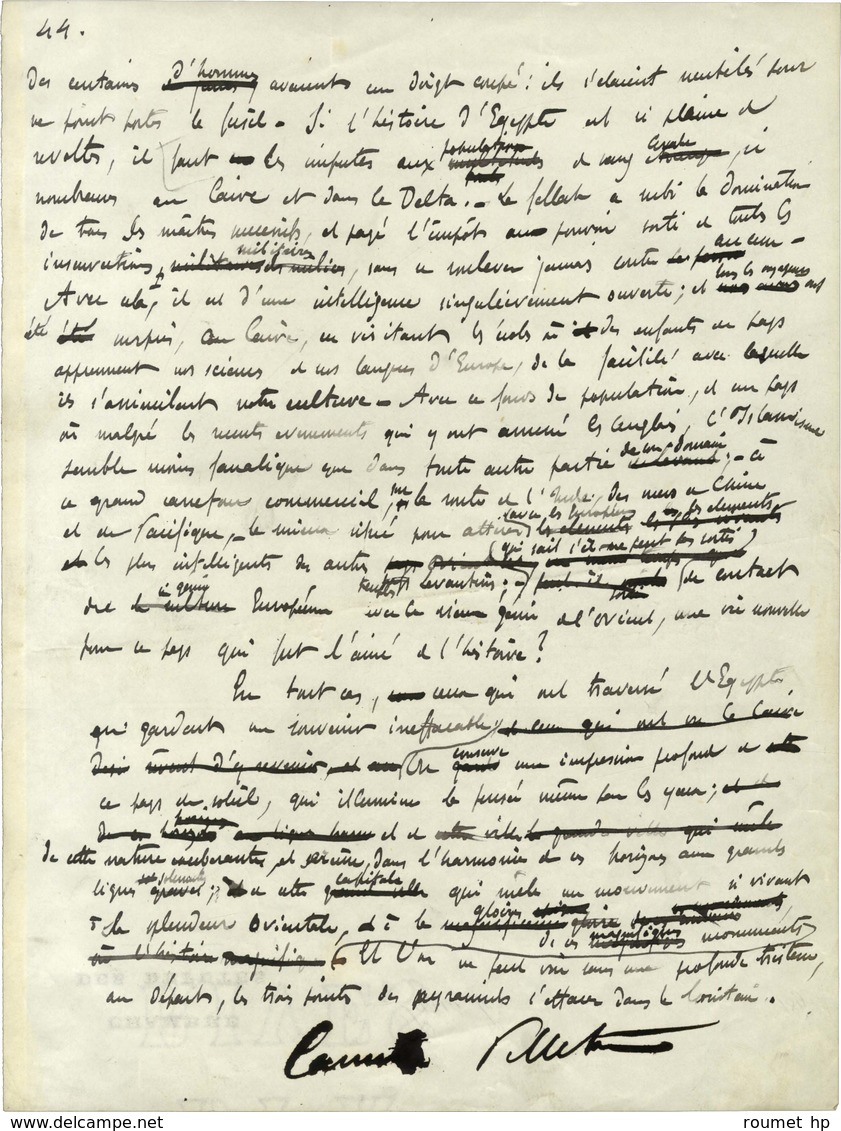 44.
des centaines d'hommes avaient un doigt coupé : ils s'étaient mutilés pour
ne point porter le fusil – Si l'histoire d'Egypte est si pleine de
révoltes, il faut les imputer aux populations de sang Arabe, si
nombreuses au Caire et dans le Delta. – Le fellah a subi la domination
de tous les maîtres successifs, et payé l'impôt au pouvoir sorti de toutes les
insurrections militaires, sans se soulever jamais contre aucun –
Avec cela, il est d'une intelligence singulièrement ouverte ; et tous les voyageurs ont
été surpris, au Caire, en visitant les écoles où des enfants du pays
apprennent nos sciences et nos langues d'Europe, de la facilité avec laquelle
ils s'assimilent notre culture – Avec ce fonds de population, et un pays
où malgré les récents événements qui y ont amené les Anglais, l'Islamisme
semble moins fanatique que dans toute autre partie de son domaine ; – à
ce grand carrefour commercial, sur la route de l'Inde, des mers de Chine
et du Pacifique, – le mieux situé pour attirer (avec les Européens) les éléments
les plus intelligents des autres Levantins ; – qui sait s'il ne peut pas sortir du contact
du génie Européen avec le vieux génie de l'Orient, une vie nouvelle
pour ce pays qui fut l'aîné de l'histoire ?
En tout cas, ceux qui ont traversé l'Egypte
en gardent un souvenir ineffaçable
On conserve une impression profonde de
ce pays du soleil, qui illumine la pensée même par les yeux ;
et de
de cette nature exubérante, et sereine, dans l'harmonie de ces horizons aux grandes
lignes ; de cette capitale qui mêle un mouvement si vivant
à la splendeur Orientale, et à la gloire
de ces magnifiques monuments
Et l'on ne peut voir sans une profonde tristesse,
au départ, les trois points des pyramides s'effacer dans le lointain.
Camille Pelletan
roumet hp